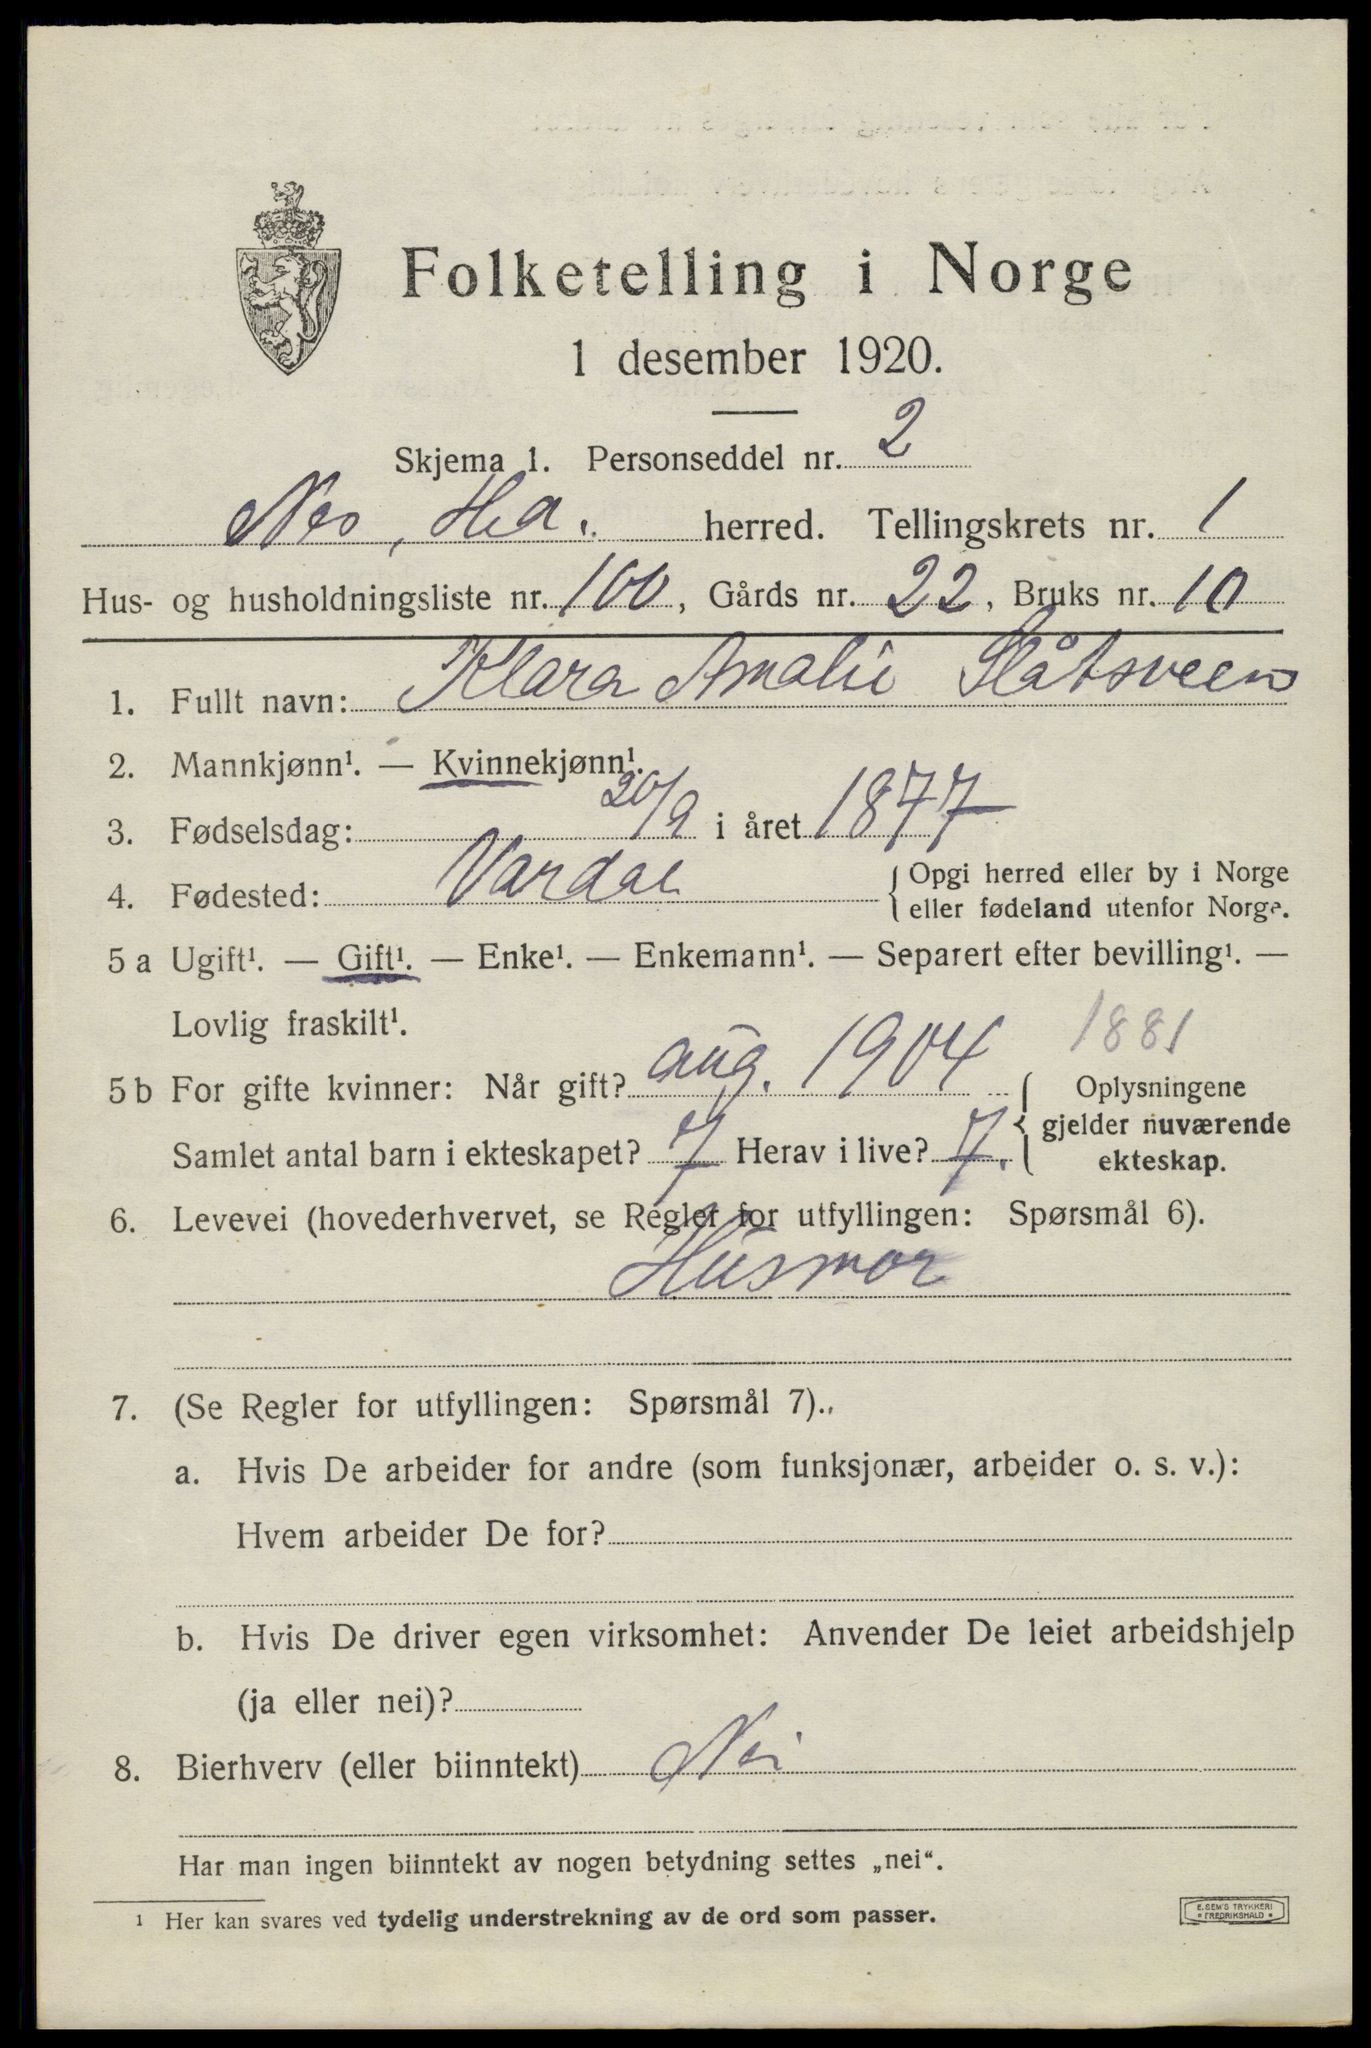 Folketelling i Norge
1 desember 1920.
Skjema 1. Personseddel nr. 2
Nes, Hed. herred. Tellingskrets nr. 1
Hus- og husholdningsliste nr. 100, Gårds nr. 22, Bruks nr. 10
1. Fullt navn: Klara Amalie Slåtsveen
2. Mannkjønn¹. — Kvinnekjønn¹.
3. Fødselsdag: 20/9 i året 1877
4. Fødested: Vardal { Opgi herred eller by i Norge
eller fødeland utenfor Norge.
5 a Ugift¹. — Gift¹. — Enke¹. — Enkemann¹. — Separert efter bevilling¹. —
Lovlig fraskilt¹.
1881
5 b For gifte kvinner: Når gift? aug. 1904
Samlet antal barn i ekteskapet? 7 Herav i live? 7.
{ Oplysningene
gjelder nuværende
ekteskap.
6. Levevei (hovederhvervet, se Regler for utfyllingen: Spørsmål 6).
Husmor
7. (Se Regler for utfyllingen: Spørsmål 7)..
a. Hvis De arbeider for andre (som funksjonær, arbeider o. s. v.):
Hvem arbeider De for?
b. Hvis De driver egen virksomhet: Anvender De leiet arbeidshjelp
(ja eller nei)?
8. Bierhverv (eller biinntekt) Nei
Har man ingen biinntekt av nogen betydning settes „nei“.
¹ Her kan svares ved tydelig understrekning av de ord som passer.
E. SEM'S TRYKKERI
* FREDRIKSHALD *